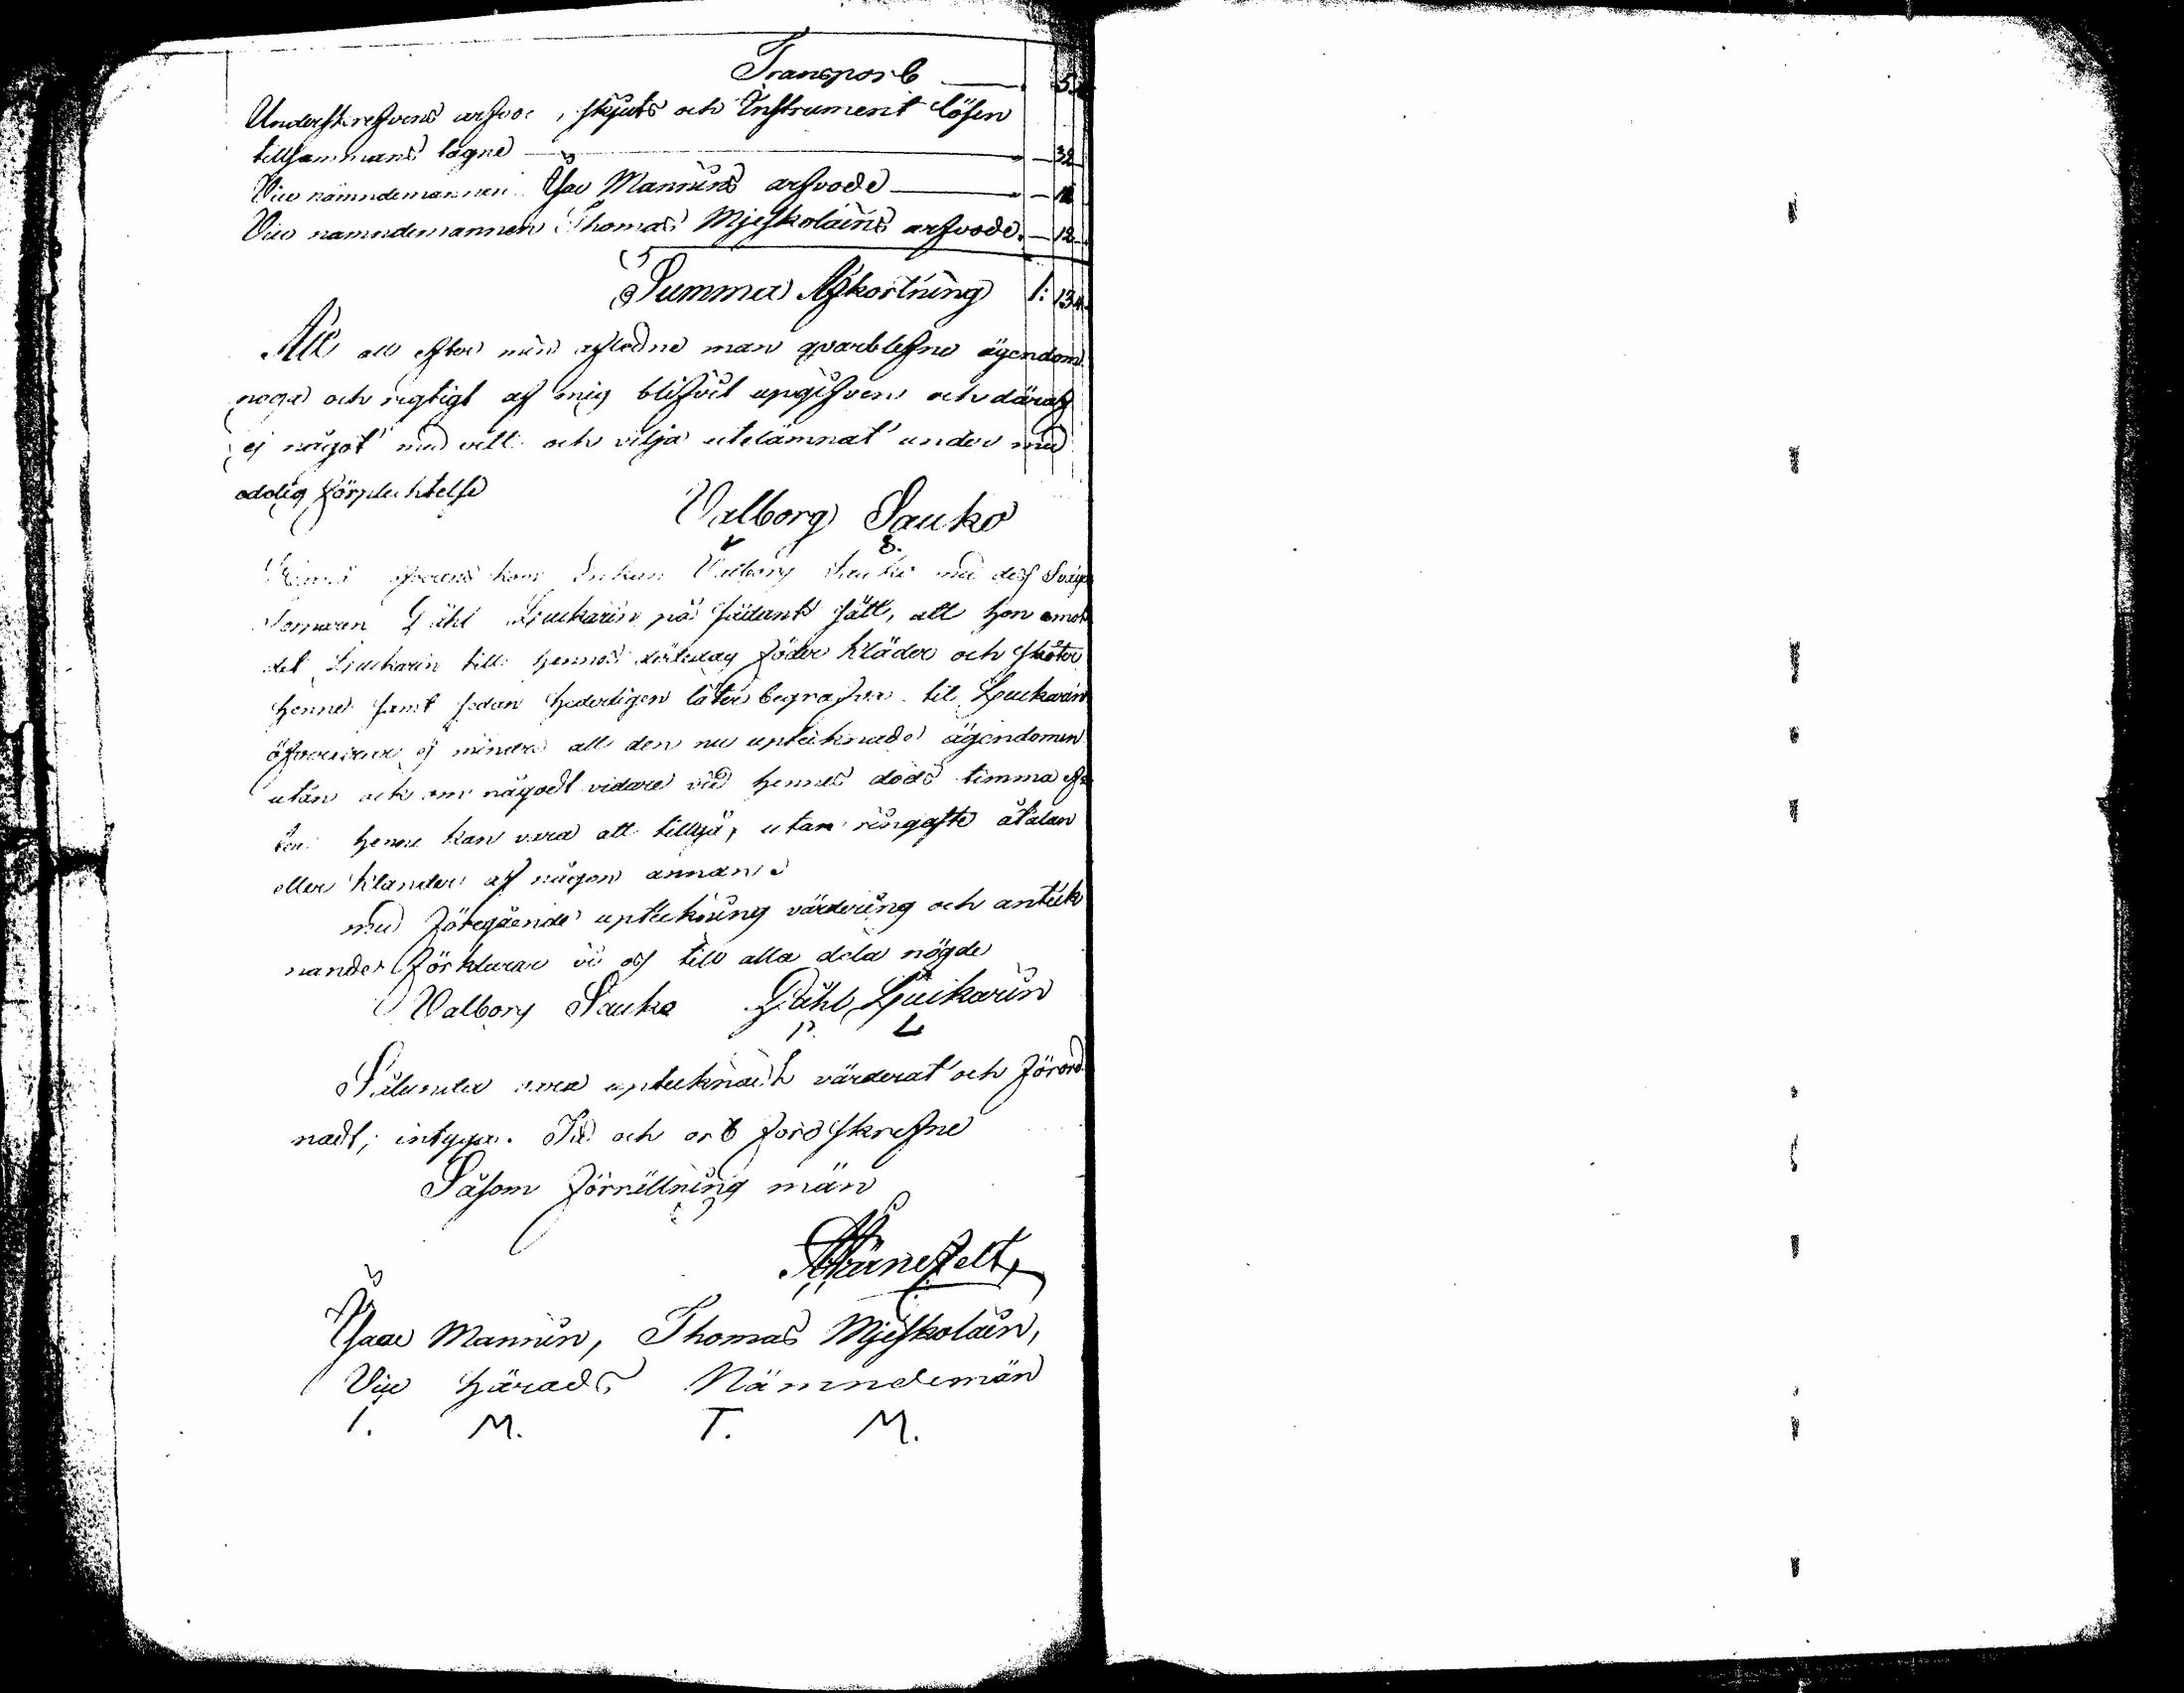 Transport 5
Underskrefvens arfvode, skjuts och Instrument lösen
tillsammans tagne — 32
Vice nämndemannen Isac Mannins arfvode — 12
Vice namndemannen Thomas Mjeskolains arfvode — 12
Summa Afkortning 1: 13
Att all efter min afledne man qvarblefne ägendom
noga och rigtigt af mig blifvit upgifven och däraf
ej något med vett och vilja utelämnat under med
edelig förplichtelse
Valborg Sauko
V S.
öfverens kom Enkan Valborg Sauko med dess Svåger
Påhl Luckarin på sådant sätt, att hon emot
det Luckarin till hennes dödedag föder kläder och sköter
henne samt sedan hederligen låter begrafva till Luckarin
ej mindre all den nu upteknade ägendomen
utan ock om någodt vidare vid hennes döds timma ef
ter henne kan vara att tillgå, utan ringaste åtalan
eller klander af någon annan
med föregående uptekning värdering och antek
nande förklarar vi oss till alla dela nögde
Valborg Sauko Påhl Luckarin
P. L
Sålunda vara upteknadt värderat och förord
nadt, intyga. Tid och ort förr skrefne
Såsom förrättning män
Järnefelt
Isac Mannin, Thomas Mjeskolain,
Vice Härads Nämndemän
I. M. T. M.